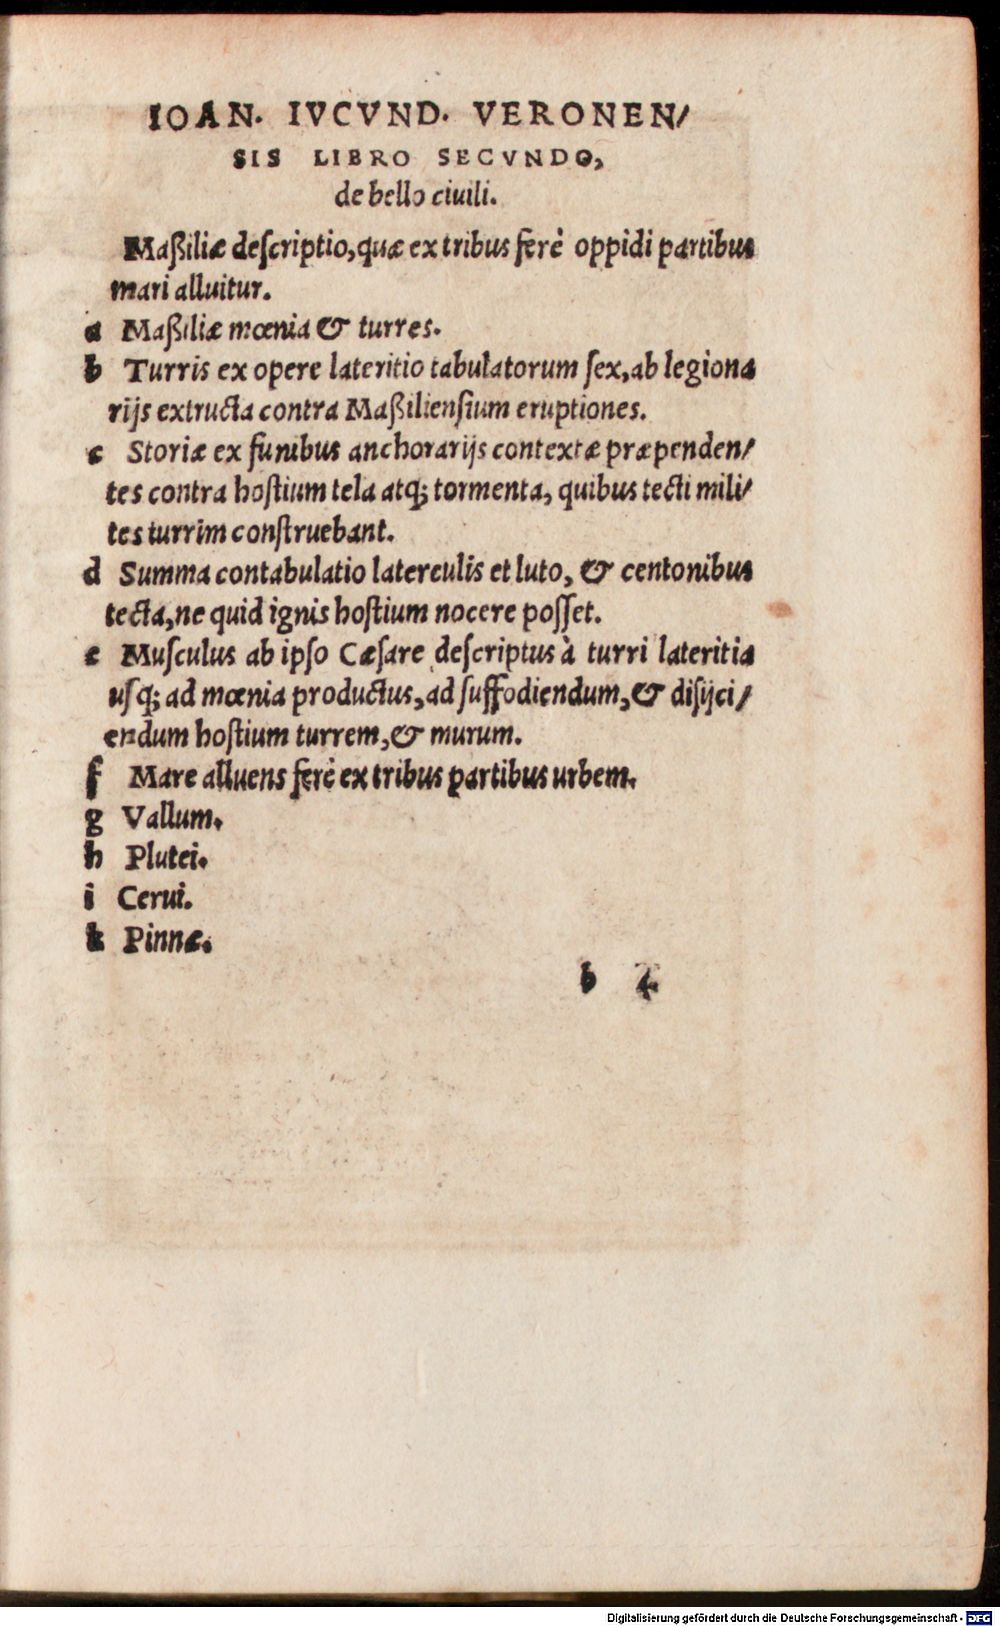 IOAN. IVCVND. VERONEN/
SIS LIBRO SECVNDO,
de bello ciuili.
Maßiliæ deſcriptio, quæ ex tribus ferè oppidi partibus
mari alluitur.
a Maßiliæ mœnia & turres.
b Turris ex opere lateritio tabulatorum ſex, ab legiona
rijs extructa contra Maßilienſium eruptiones.
c Storiæ ex funibus anchorarijs contextæ præpenden/
tes contra hoſtium tela atq; tormenta, quibus tecti mili/
tes turrim conſtruebant.
d Summa contabulatio laterculis et luto, & centonibus
tecta, ne quid ignis hoſtium nocere poſſet.
e Muſculus ab ipſo Cæſare deſcriptus à turri lateritia
uſq; ad mœnia productus, ad ſuffodiendum, & diſijci/
endum hoſtium turrem, & murum.
f Mare alluens ferè ex tribus partibus urbem.
g Vallum.
h Plutei.
i Cerui.
k Pinnæ.
b 4
Digitalisierung gefördert durch die Deutsche Forschungsgemeinschaft - DFG